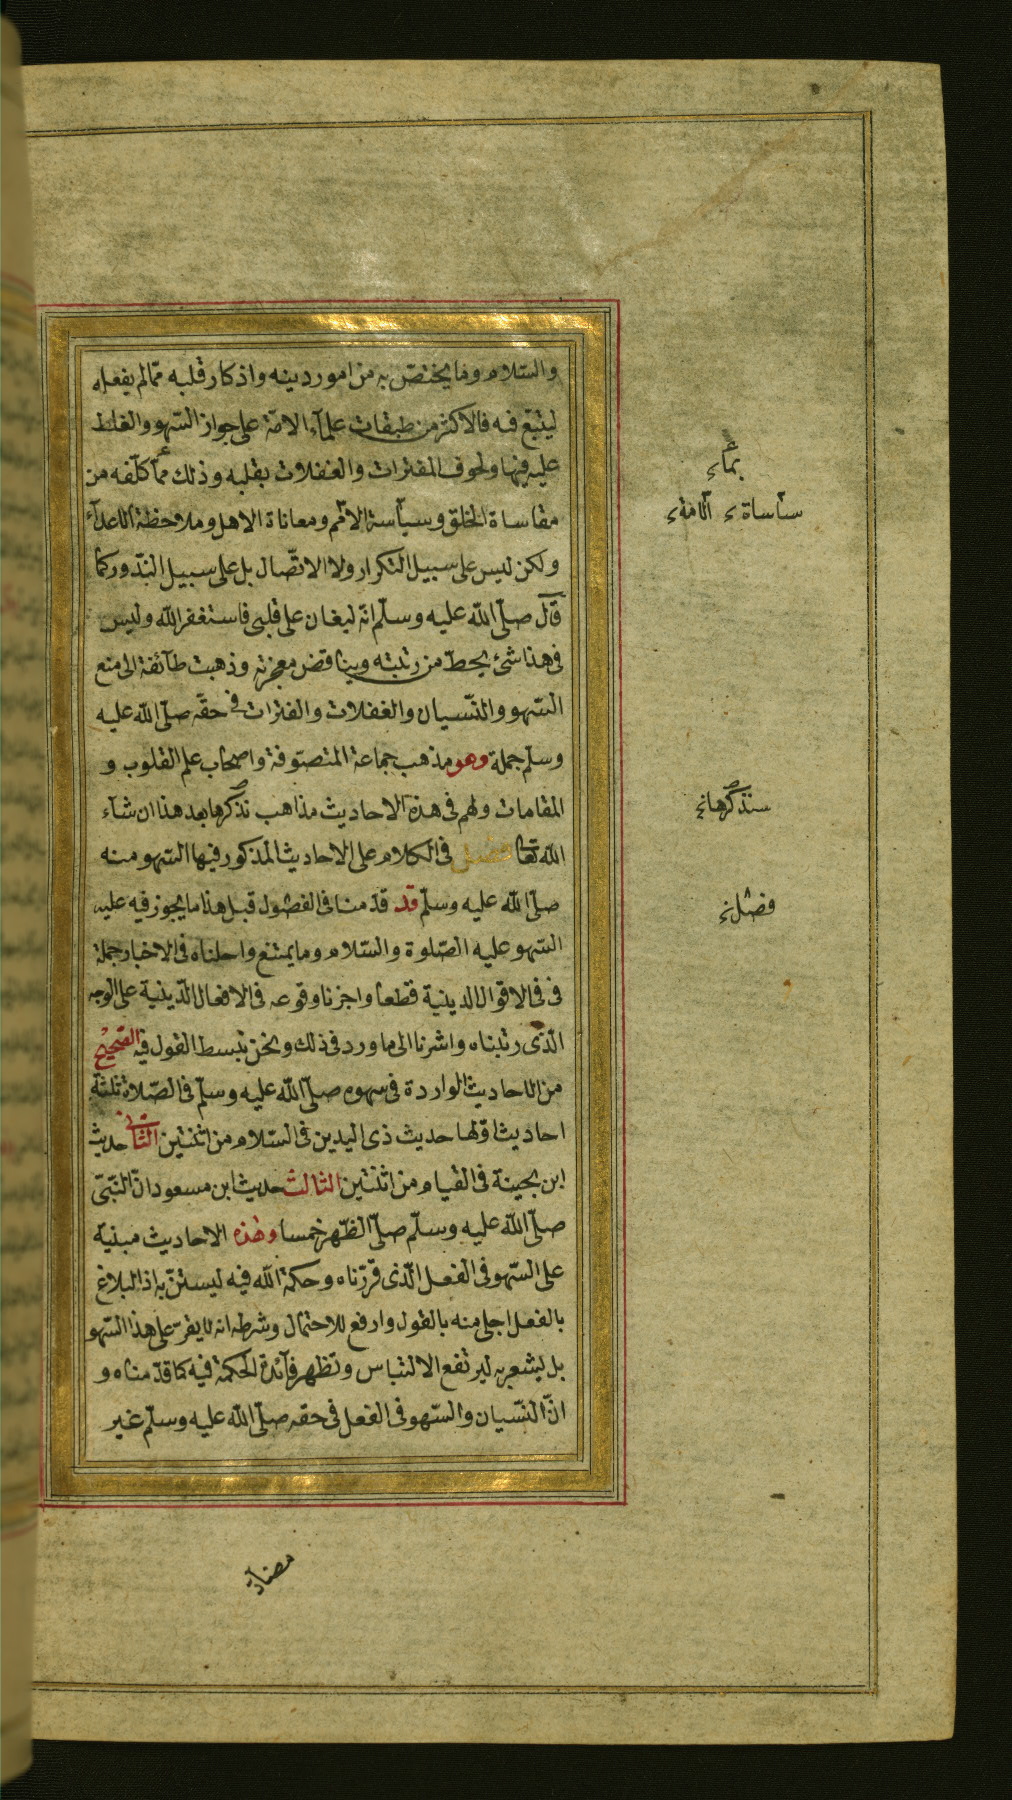 والسّلام وما يختصّ به من امور دينه واذكار قلبه ممّا لم يفعله
ليتبع فيه فالاكثر من طبقات علمآء الامّة على جواز السّهو والغلط
عليه فيها ولحوق الفترات والغفلات بقلبه وذلك ممّا كلّفه من
مقاساة الخلق وسياسة الامّم ومعاناة الاهل وملاحظة الاعدآء
ولكن ليس على سبيل التكرار ولا الاتّصال بل على سبيل النّدور كما
قال صلّى الله عليه وسلّم انّه ليغان على قلبى فاستغفر الله وليس
فى هذا شئ يحطّ من رتبته ويناقض معجزته وذهبت طآئفة الى منع
السّهو والنّسيان والغفلات والفترات فى حقّه صلّى الله عليه
وسلّم جملة وهو مذهب جماعة المتصوّفة واصحاب علم القلوب و
المقامات ولهم فى هذه الاحاديث مذاهب نذكرها بعد هذا ان شآء
الله تعا فصل فى الكلام على الاحاديث المذكور فيها السّهو منه
صلّى الله عليه وسلّم قد قدّمنا فى الفصول قبل هذا ما يجوز فيه عليه
السّهو عليه الصّلوة والسّلام وما يمتنع واحلناه فى الاخبار جملة
فى فى الاقوال الدينية قطعا واجزنا وقوعه فى الافعال الدّينية على الوجه
الّذى رتبناه واشرنا الى ما ورد فى ذلك ونحن نبسط القول فيه الصّحيح
من الاحاديث الواردة فى سهوه صلّى الله عليه وسلّم فى الصّلاة ثلثة
احاديث اوّلها حديث ذى اليدين فى السّلام من اثنتين الثّانى حديث
ابن بحينة فى القيام من اثنتين الثالث حديث ابن مسعود انّ النّبىّ
صلّى الله عليه وسلّم صلّى الظّهر خمسا وهذه الاحاديث مبنيّة
على السّهو فى الفعل الّذى قرّرناه وحكمة الله فيه ليستنّ به اذ البلاغ
بالفعل اجلى منه بالقول وارفع للاحتمال وشرطه انه لا يقرّ على هذا السّهو
بل يشعر به ليرتفع الالتباس وتظهر فآئدة الحكمة فيه كما قدّمناه و
انّ النّسيان والسّهو فى الفعل فى حقه صلّى الله عليه وسلّم غير
بما
سياساة الامة
سنذكرها
فصل
مضادّ